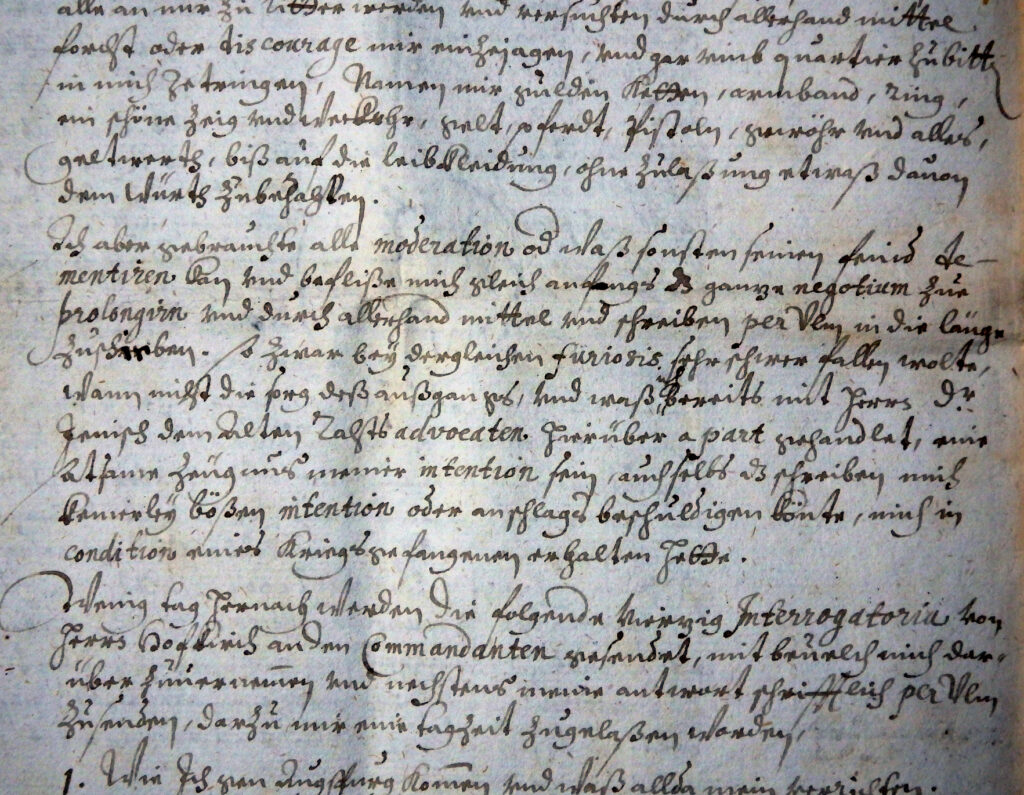 alle an mir zu Ritter werden vnd versuchten durch allerhand mittel
forcht oder discourage mir einzejagen, vnd gar vmb quartier zu bitt
in mich zetringen, Namen mir gulden Ketten, armband, Ring,
ein schöne Zeig vnd Weckvhr, gelt, pferdt, Pistoln, gewöhr vnd alles,
geltwerth, biß auf die leibkleidung, ohne Zulaßung etwaß dauon
dem Würth Zubezahlen.
Ich aber gebrauchte alle moderation od waß sonsten seinen feind de-
mentiren kan vnd befliße mich gleich anfangs dz ganze negotium zue
prolongirn vnd durch allerhand mittel vnd schreiben per Vlm in die länge
Zuschieben. so zwar bey dergleichen furiosis sehr schwer fallen wolte,
wann nichst die sorg deß außgangs, vnd waß bereits mit Herrn Dr.
Jenisch dem Alten Rahts advocaten hierüber a part gehandlet, eine
Zeügnus meiner intention sein, auch selbs dz schreiben mich
keinerley bößen intention oder anschlags beschuldigen könte, mich in
condition eines Kriegsgefangenen erhalten hette.
Wenig tag hernach werden die folgende vierzig Interrogatoria von
Herrn Hofkirch an den Commandanten gesendet, mit beuelch mich dar-
über Zuuernemen vnd nechstens meine antwort schrifftlich per Vlm
Zusenden, darzu mir eine tagzeit Zugelaßen worden,
1. Wie Ich gen Augspurg kommen vnd waß allda mein verrichten.